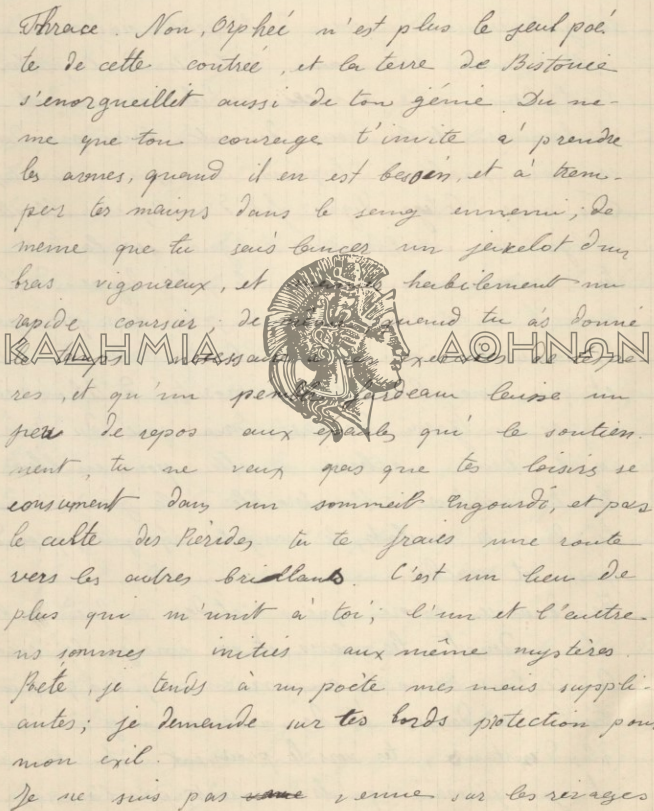 Thrace. Non, Orpheé n'est plus le seul poé
te de cette contreé, et la terre de Bistonie
s'enorgueillit aussi de ton génie. Du me-
me que ton courage t'invite à prendre
les armes, quand il en est besoin, et à trem-
per tes mains dans le sang ennemi; de
meme que tu sais lancer un javelot d'un
bras vigoureux, et habilement un
rapide coursier; de quand tu as donné
ΚΑΔΗΜΙΑ ΑΘΗΝΩΝ
res, et qu'un fardeau laisse un
peu de repos aux epaules qui le soutien.
nent, tu ne veux pas que tes loisirs se
consument dans un sommeil engourdi, et par
le culte des Piérides tu te fraies une route
vers les astres brillants. C'est un lien de
plus qui m'unit à toi; l'un et l'autre
ns sommes initiés aux même mystères.
Poéte, je tends à un poète mes mais suppli-
antes; je demande sur tes bords protection pour
mon exil.
Je ne suis pas venue sur les rivages